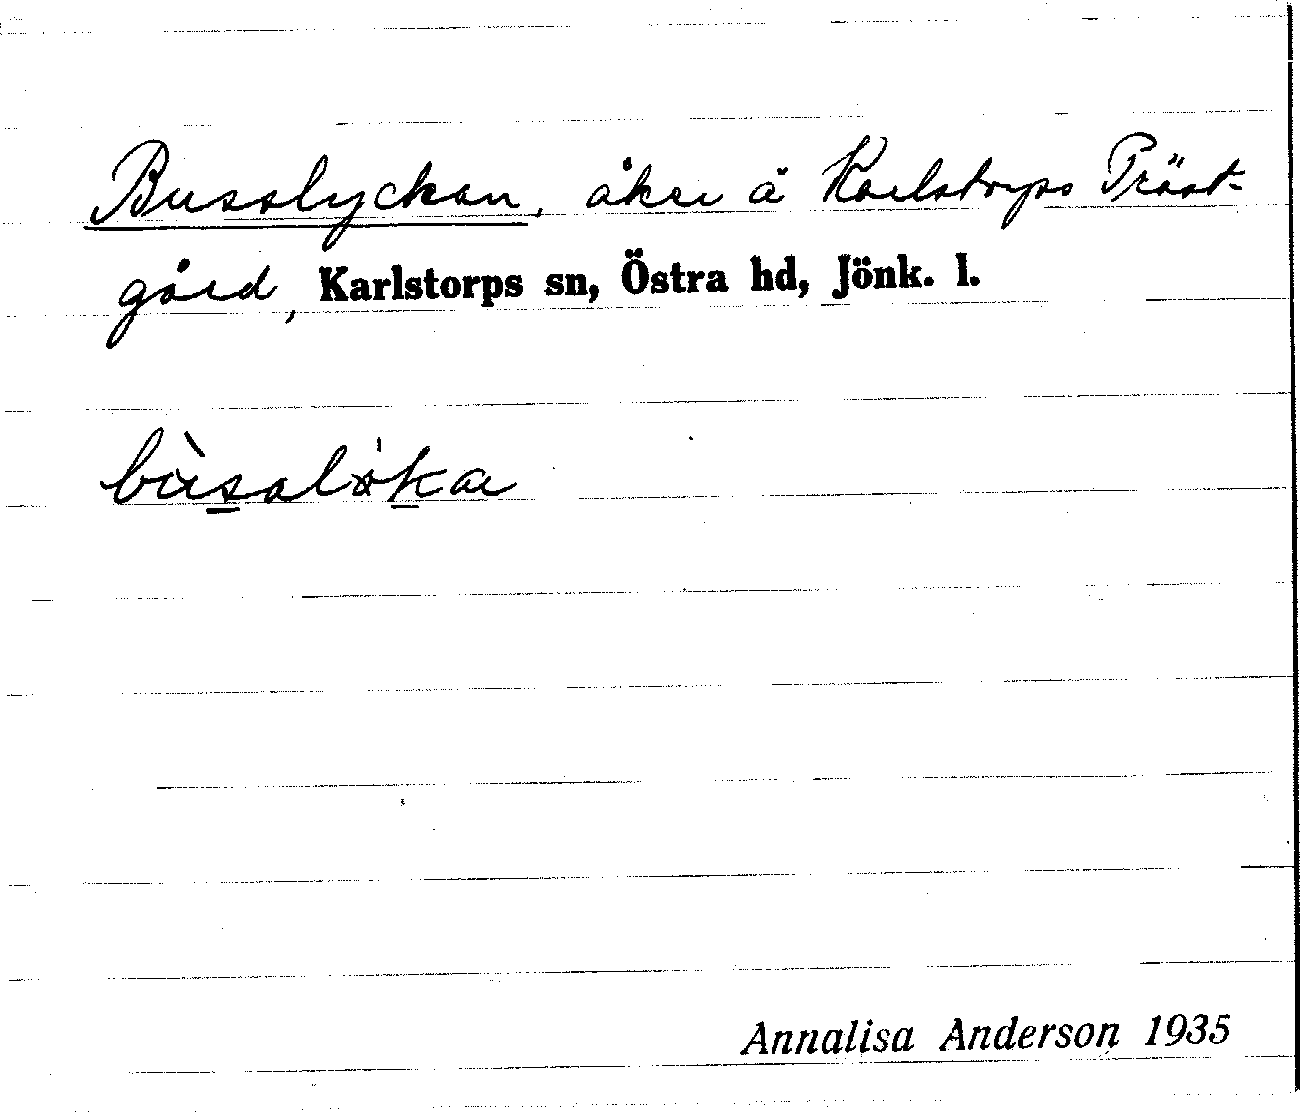 Busslyckan, åker å Karlstorps Präst-
gård, Karlstorps sn, Östra hd, Jönk. l.
Annalisa Anderson 1935